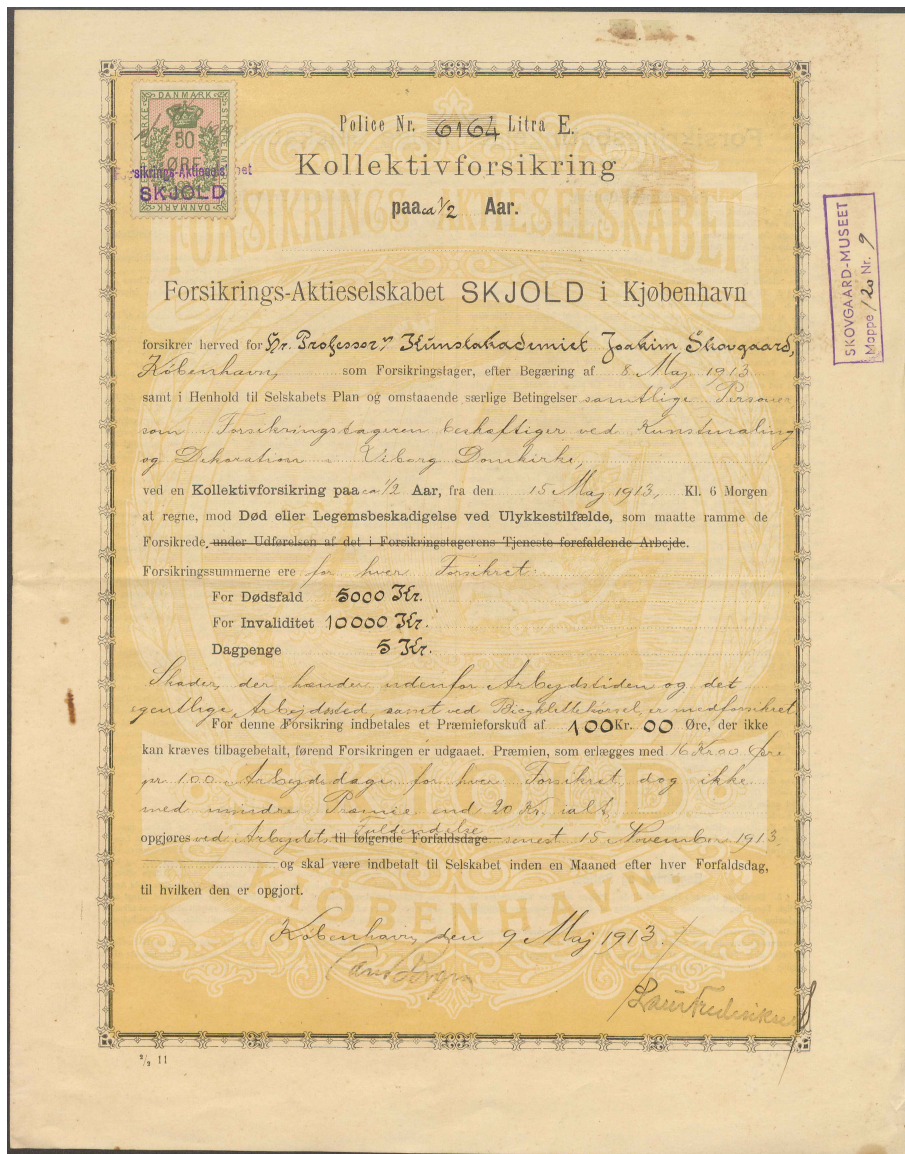 DANMARK
STEMPELMÆRKE
50
ØRE
DANMARK
rsikrings-Aktieselskabet
SKJOLD
Police Nr. 6164 Litra E.
Kollektivforsikring
paa ca 1/2 Aar.
FORSIKRINGS-AKTIESELSKABET
Forsikrings-Aktieselskabet SKJOLD i Kjøbenhavn
SKOVGAARD-MUSEET
Mappe 120 Nr. 9
forsikrer herved for Hr. Professor v Kunstakademiet Joakim Skovgaard,
København, som Forsikringstager, efter Begæring af 8 Maj 1913
samt i Henhold til Selskabets Plan og omstaaende særlige Betingelser samtlige Personer
som Forsikringstageren beskæftiger ved Kunstmaling
og Dekoration i Viborg Domkirke,
ved en Kollektivforsikring paa ca 1/2 Aar, fra den 15 Maj 1913, Kl. 6 Morgen
at regne, mod Død eller Legemsbeskadigelse ved Ulykkestilfælde, som maatte ramme de
Forsikrede, under Udførelsen af det i Forsikringstagerens Tjeneste forefaldende Arbejde.
Forsikringssummerne ere for hver Forsikret:
For Dødsfald 5000 Kr.
For Invaliditet 10000 Kr.
Dagpenge 5 Kr.
Skader, der hænder udenfor Arbejdstiden og det
egentlige Arbejdssted, samt ved Bicyklettekørsel, er medforsikret
For denne Forsikring indbetales et Præmieforskud af 100 Kr. 00 Øre, der ikke
kan kræves tilbagebetalt, førend Forsikringen er udgaaet. Præmien, som erlægges med 16 Kr 00 Øre
pr 100 Arbejdsdage for hver Forsikret, dog ikke
med mindre Præmie end 20 Kr. ialt,
opgjøres ved Arbejdets til følgende Forfaldsdage fuldendelse senest 15 November 1913
og skal være indbetalt til Selskabet inden en Maaned efter hver Forfaldsdag,
til hvilken den er opgjort.
SKJOLD
KJØBENHAVN.
København, den 9 Maj 1913.
Laur Frederiksen
2/9 11